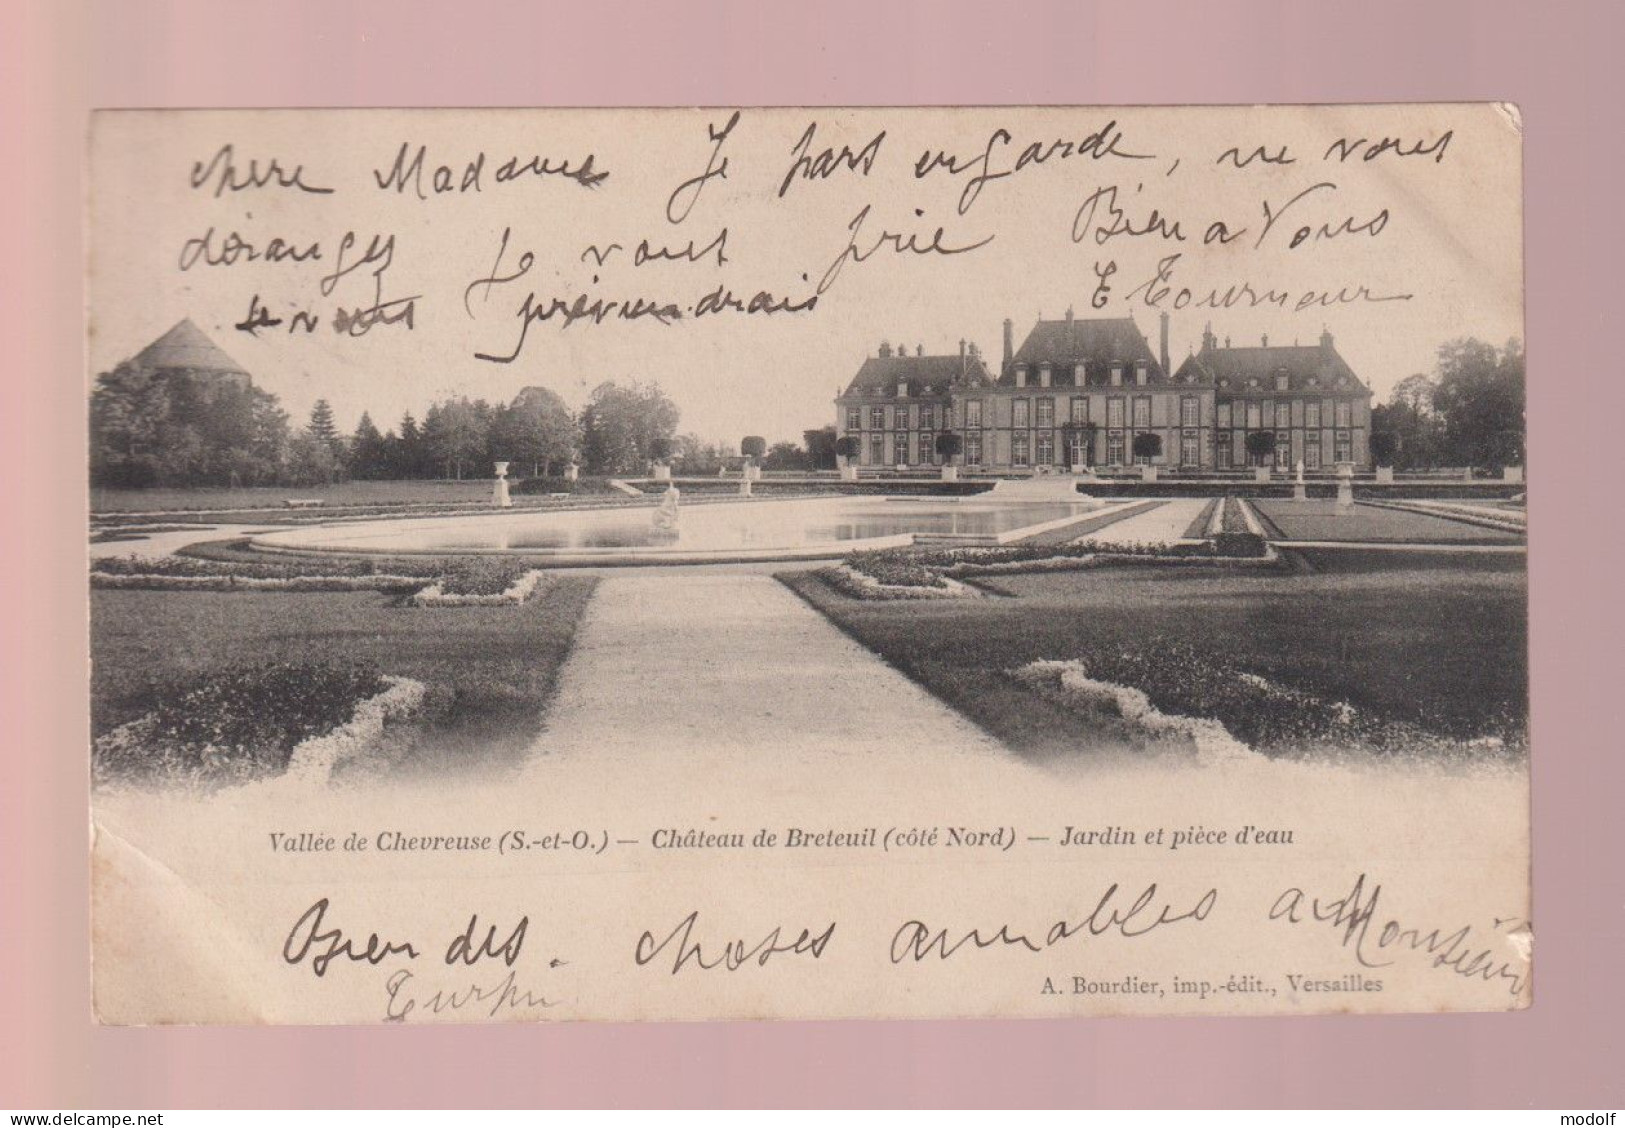 chere Madame Je pars en garde, ne vous
déranges Je vous prie Bien a Vous
Je vous préviendrais E Tourneur
Vallée de Chevreuse (S.-et-O.) — Château de Breteuil (côté Nord) — Jardin et pièce d'eau
Bien des choses aimables a Monsieur
Turpin
A. Bourdier, imp.-édit., Versailles
www.delcampe.net
modolf